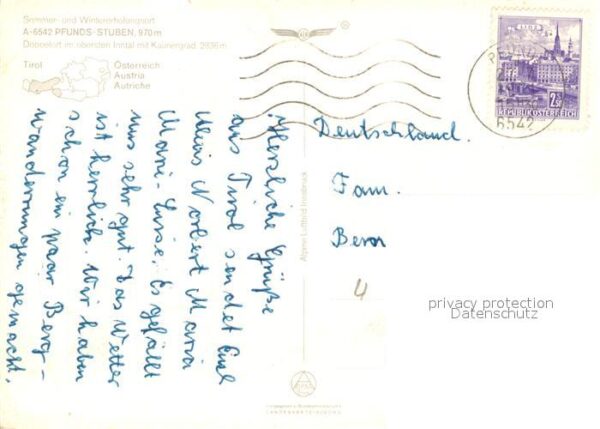 Sommer- und Wintererholungsort
A-6542 PFUNDS-STUBEN, 970 m
Doppelort im obersten Inntal mit Kaunergrad 2936 m
Tirol
Österreich
Austria
Autriche
LINZ
2.50
REPUBLIK ÖSTERREICH
6542
Herzliche Grüße
aus Tirol sendet Euch
Norbert Maria
Marie-Luise. Es gefällt
uns sehr gut. Das Wetter
ist herrlich. Wir haben
schon ein paar Berg-
wanderungen gemacht,
Alpine Luftbild Innsbruck
Deutschland.
Fam.
4
privacy protection
Datenschutz